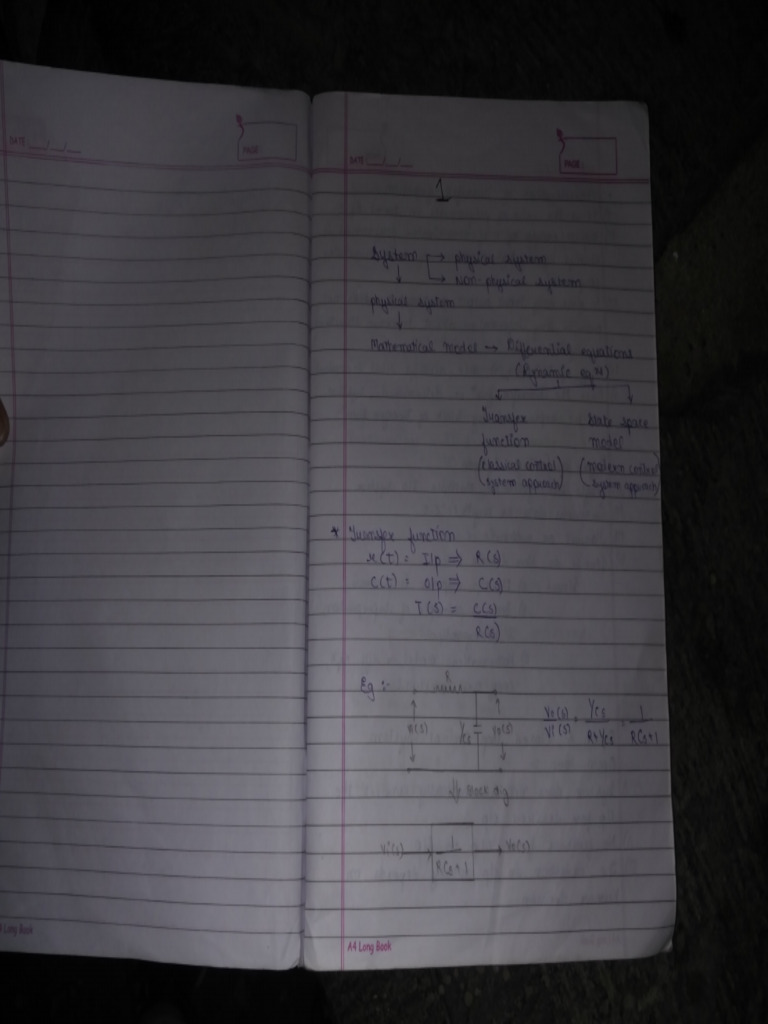 DATE
PAGE
DATE
PAGE
1
System → physical system
→ Non-physical system
physical system
Mathematical model → Differential equations
(Dynamic eqns)
Transfer function
(classical control system approach)
State space model
(modern control system approach)
* Transfer function
r(t) = I/p ⇒ R(s)
c(t) = o/p ⇒ C(s)
T(s) = C(s)/R(s)
Eg :-
R
Vi(s) 1/Cs Vo(s)
Vo(s)/Vi(s) = 1/Cs / R+1/Cs = 1/RCs+1
Vi(s) → 1/RCs+1 → Vo(s)
Long Book
A4 Long Book